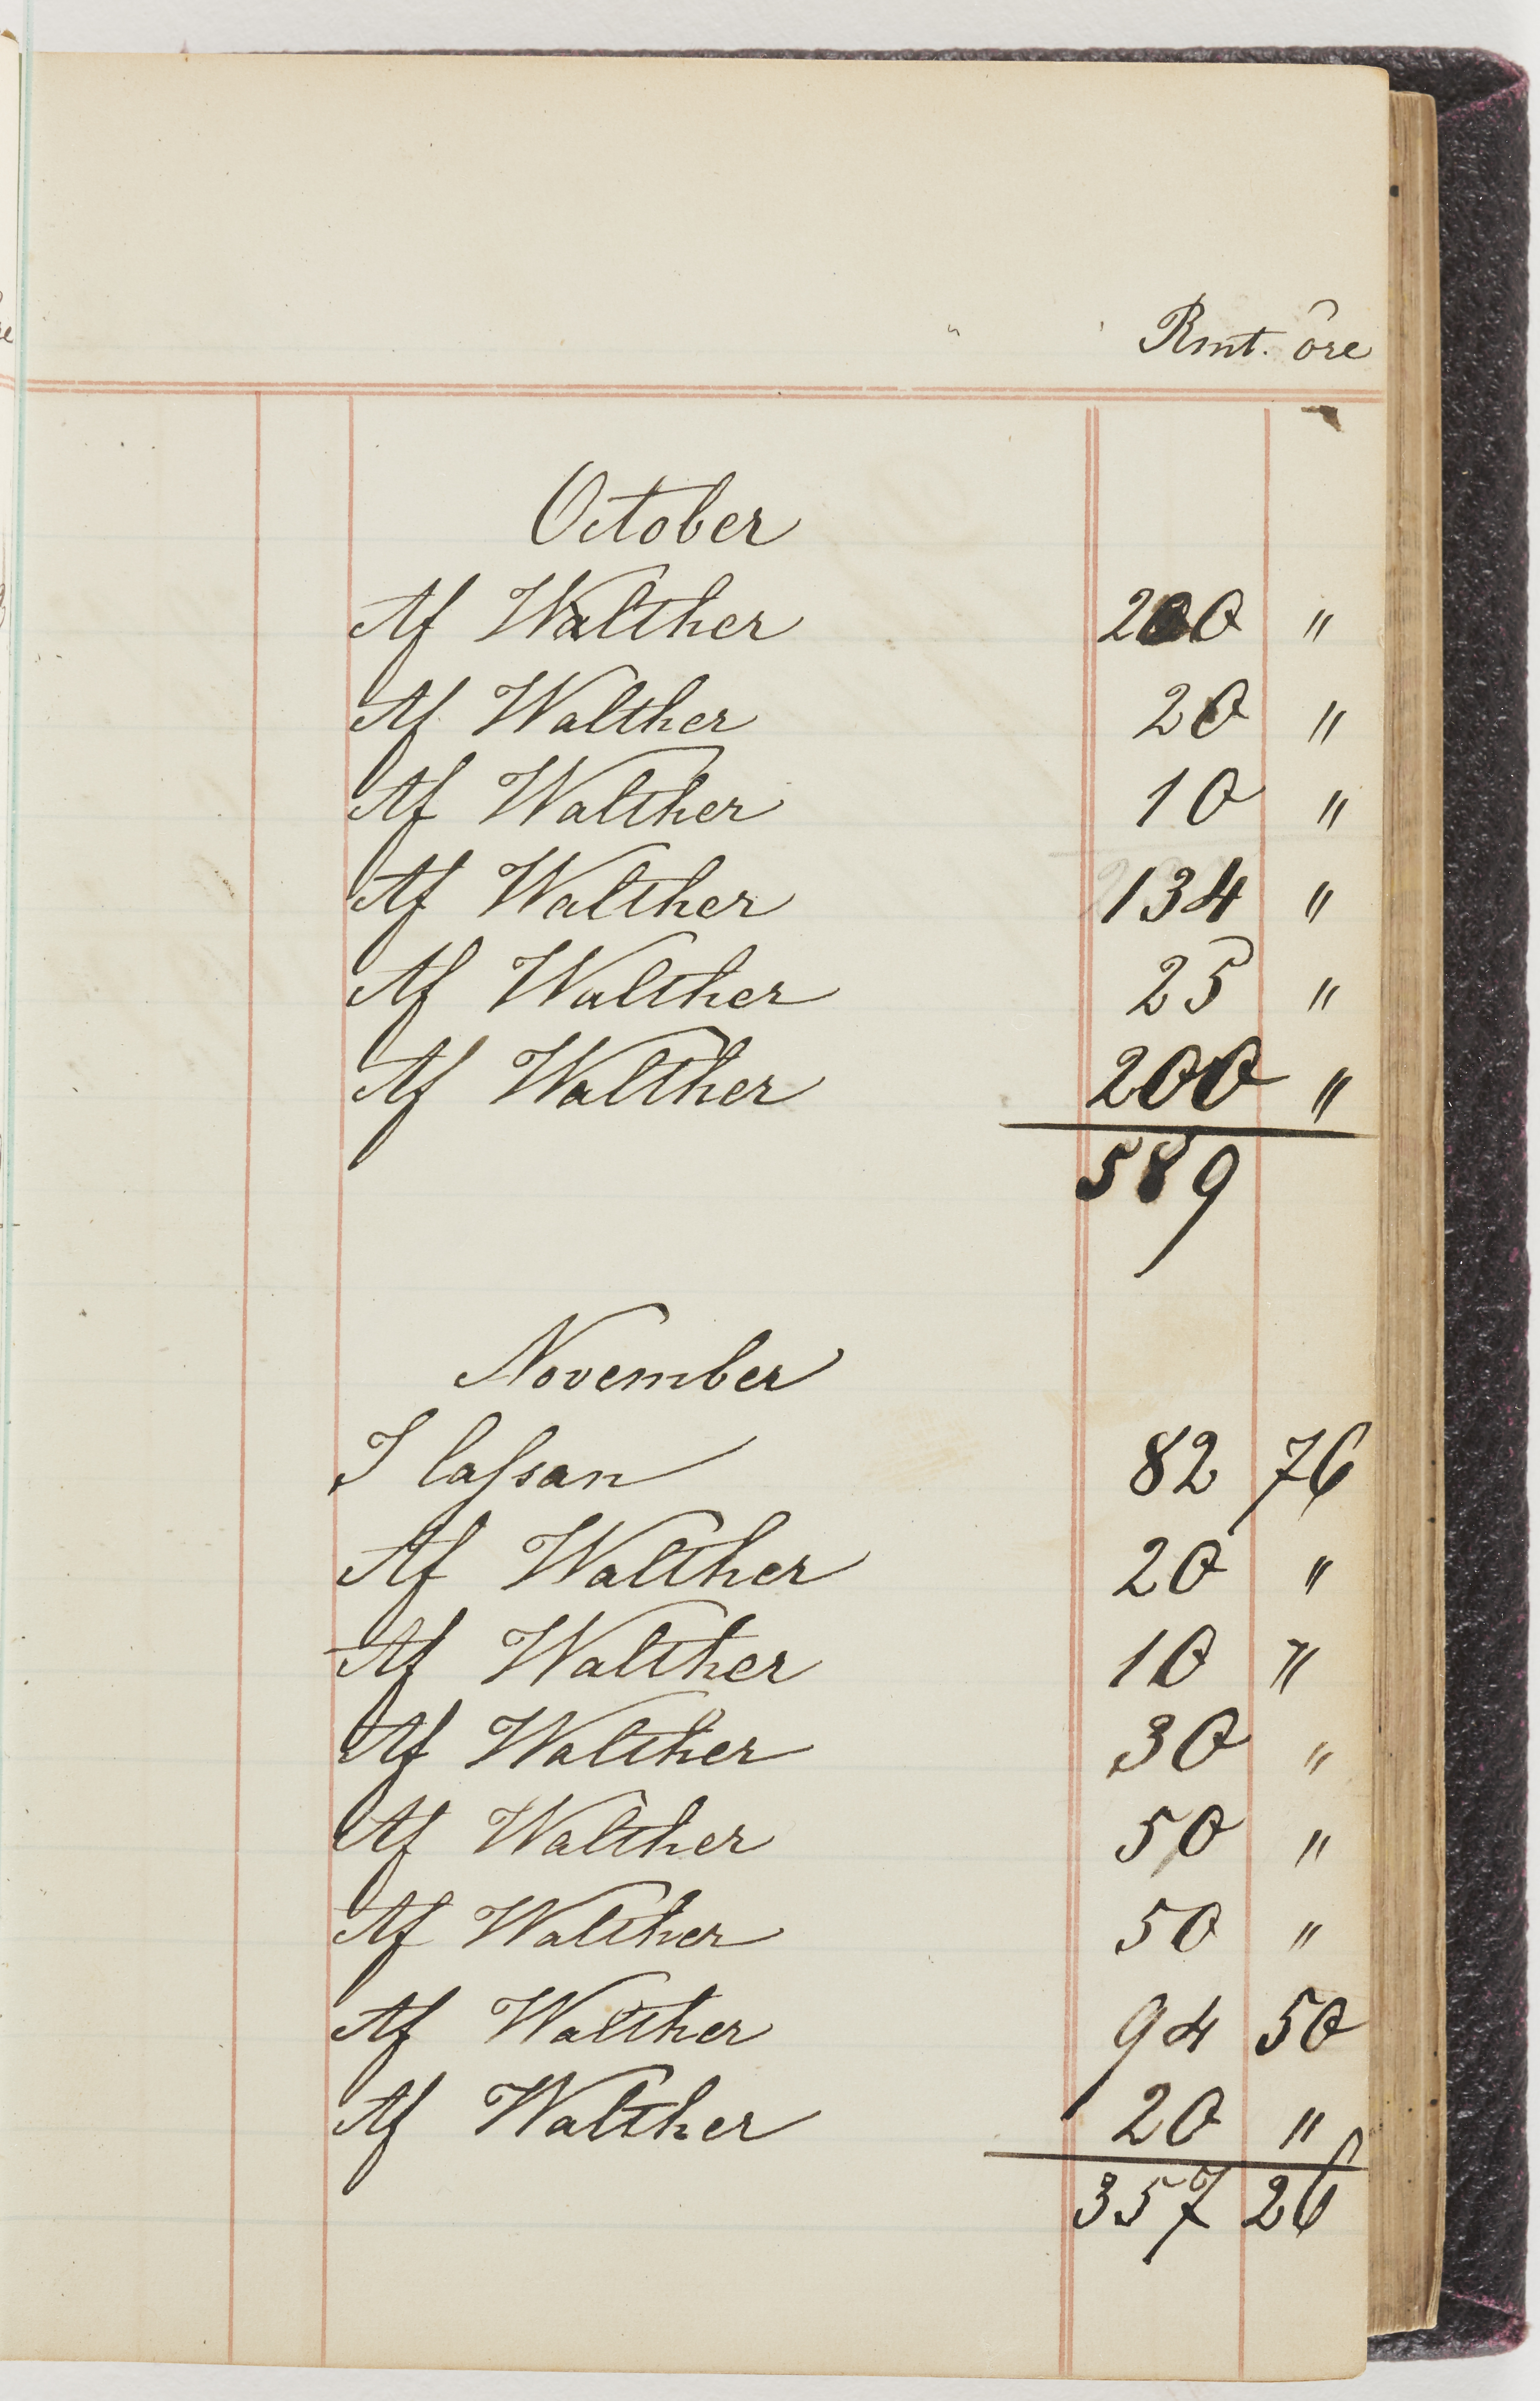 Rmt. öre
October
Af Walther 200 "
Af Walther 20 "
Af Walther 10 "
Af Walther 134 "
Af Walther 25 "
Af Walther 200 "
589
November
I Cassan 82 76
Af Walther 20 "
Af Walther 10 "
Af Walther 30 "
Af Walther 50 "
Af Walther 50 "
Af Walther 94 50
Af Walther 20 "
357 26